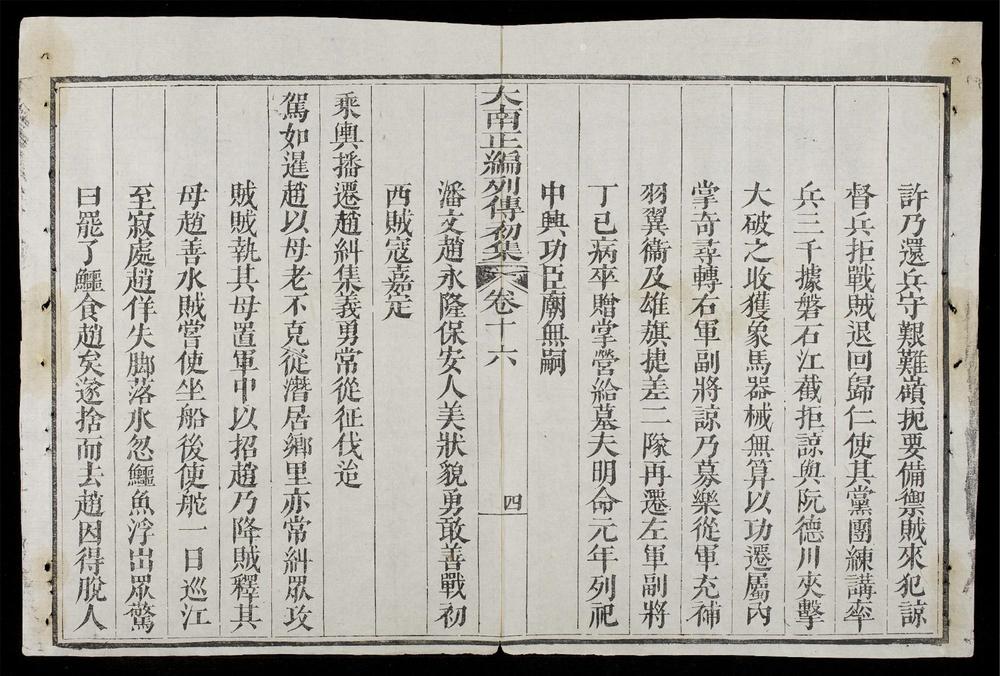 許乃還兵守艱難嶺扼要備禦賊來犯諒
督兵拒戰賊退回歸仁使其黨團練講率
兵三千據磐石江截拒諒與阮德川夾擊
大破之收獲象馬器械無算以功遷屬內
掌奇尋轉右軍副將諒乃募樂從軍充補
羽翼衞及雄旗捷差二隊再遷左軍副將
丁巳病卒贈掌營給墓夫明命元年列祀
中興功臣廟無嗣
大南正編列傳初集 卷十六 四
潘文趙永隆保安人美狀貌勇敢善戰初
西賊寇嘉定
乘輿播遷趙糾集義勇常從征伐迨
駕如暹趙以母老不克從潛居鄉里亦常糾眾攻
賊賊執其母置軍中以招趙乃降賊釋其
母趙善水賊嘗使坐船後使舵一日巡江
至寂處趙佯失脚落水忽鱷魚浮出眾驚
曰罷了鱷食趙矣遂捨而去趙因得脫人